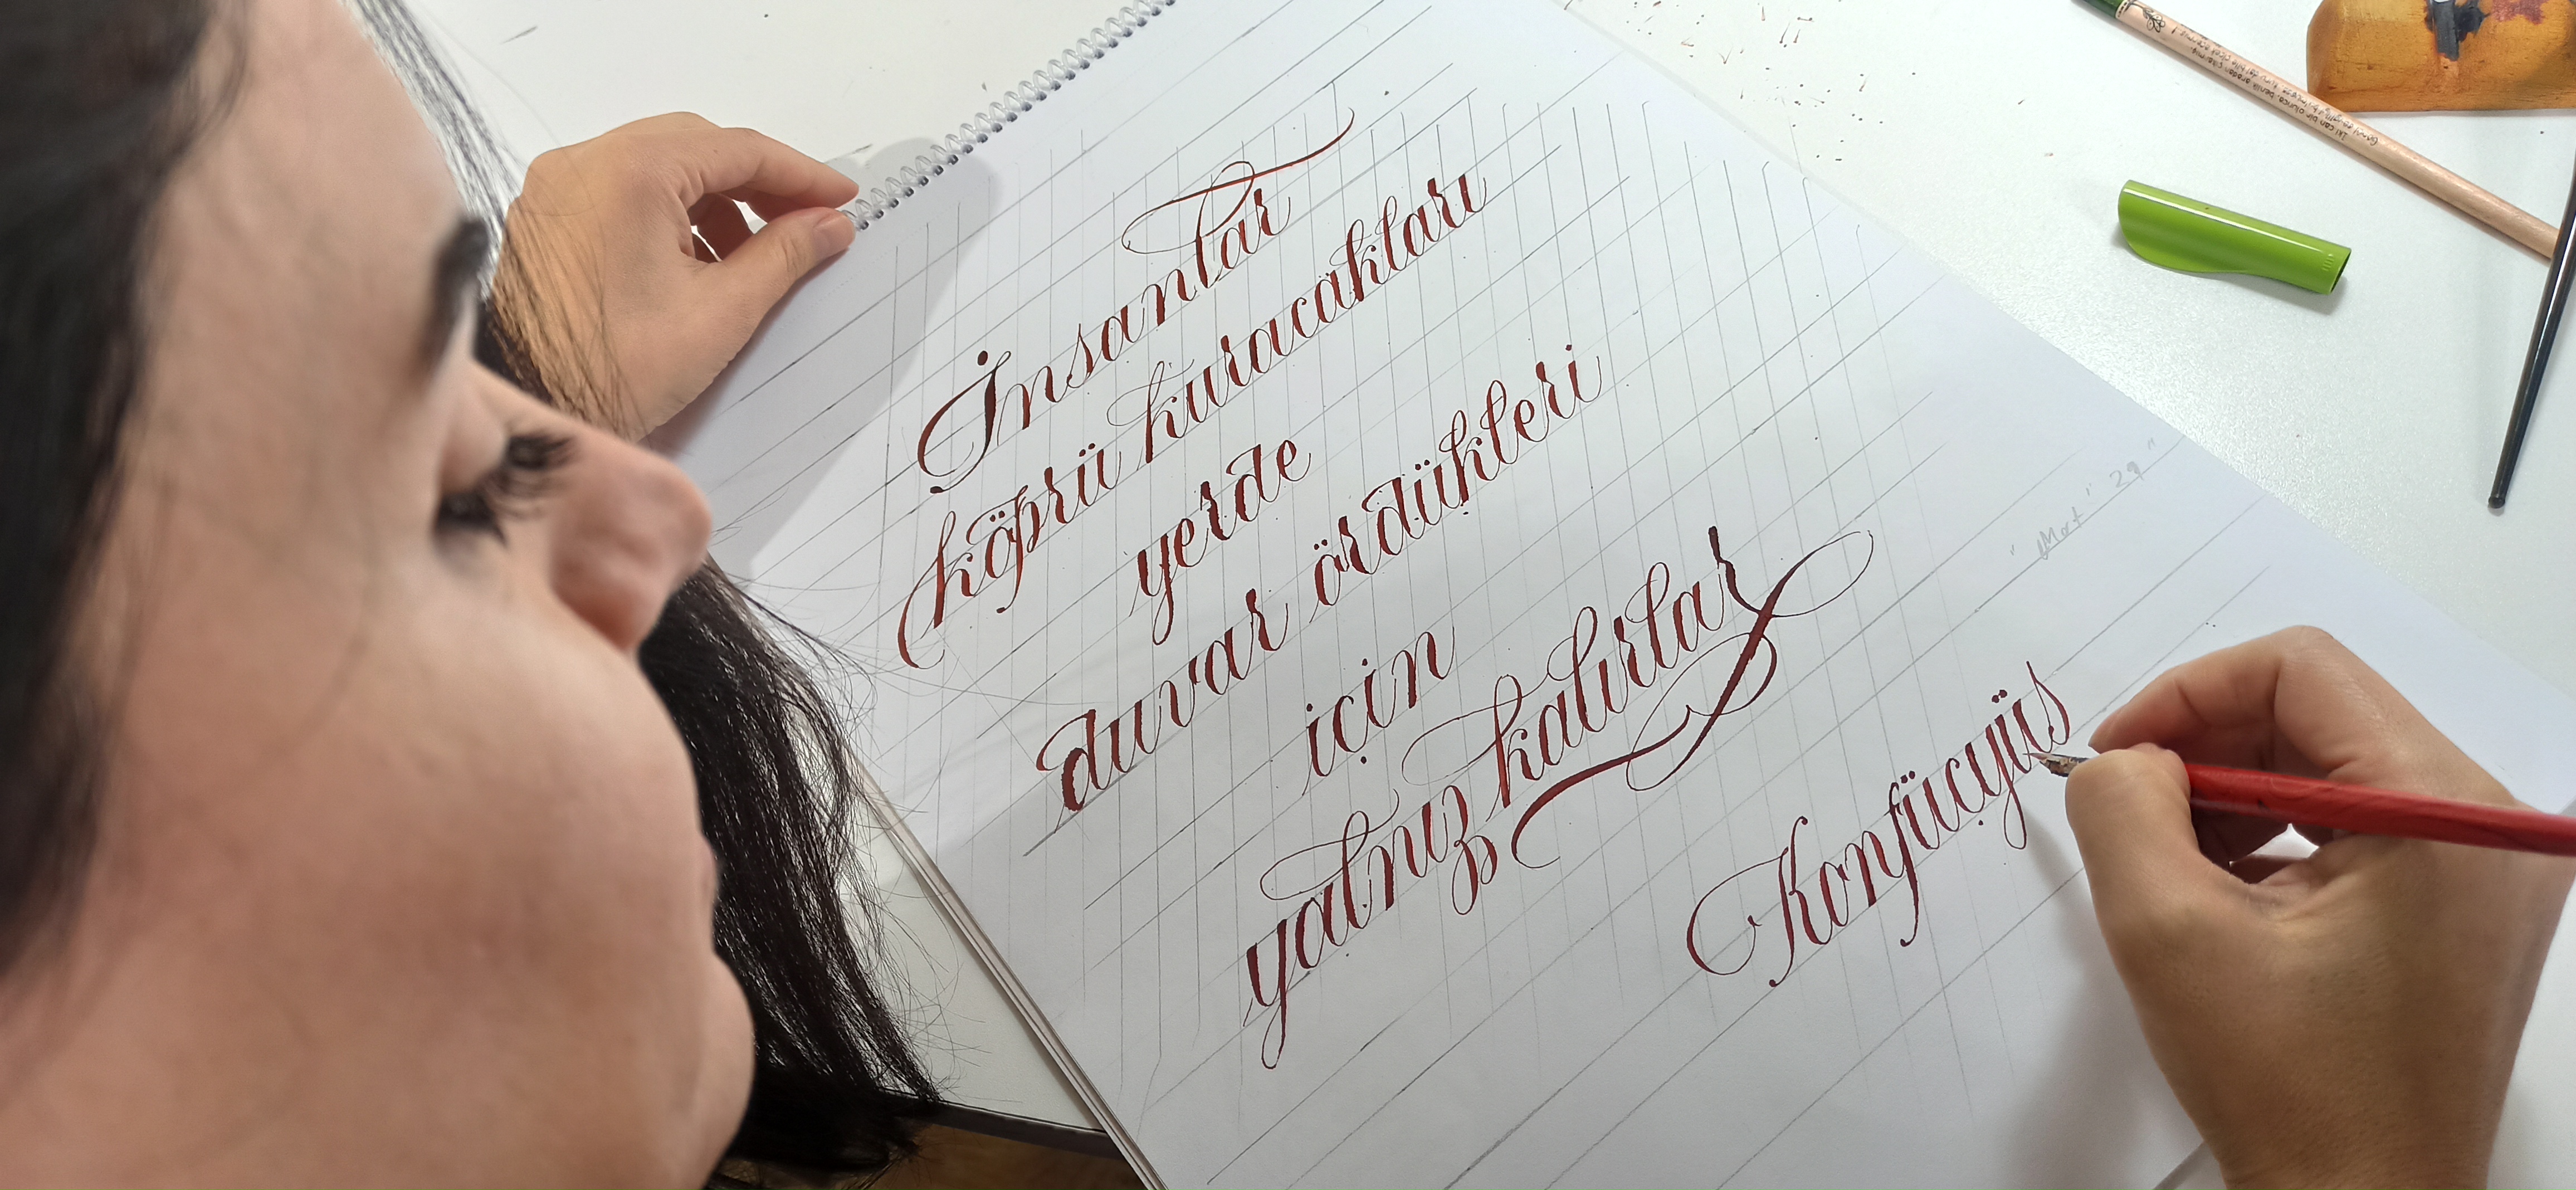 İnsanlar
köprü kuracakları
yerde
duvar ördükleri
için
yalnız kalırlar
Konfüçyüs
"Mart" 29"